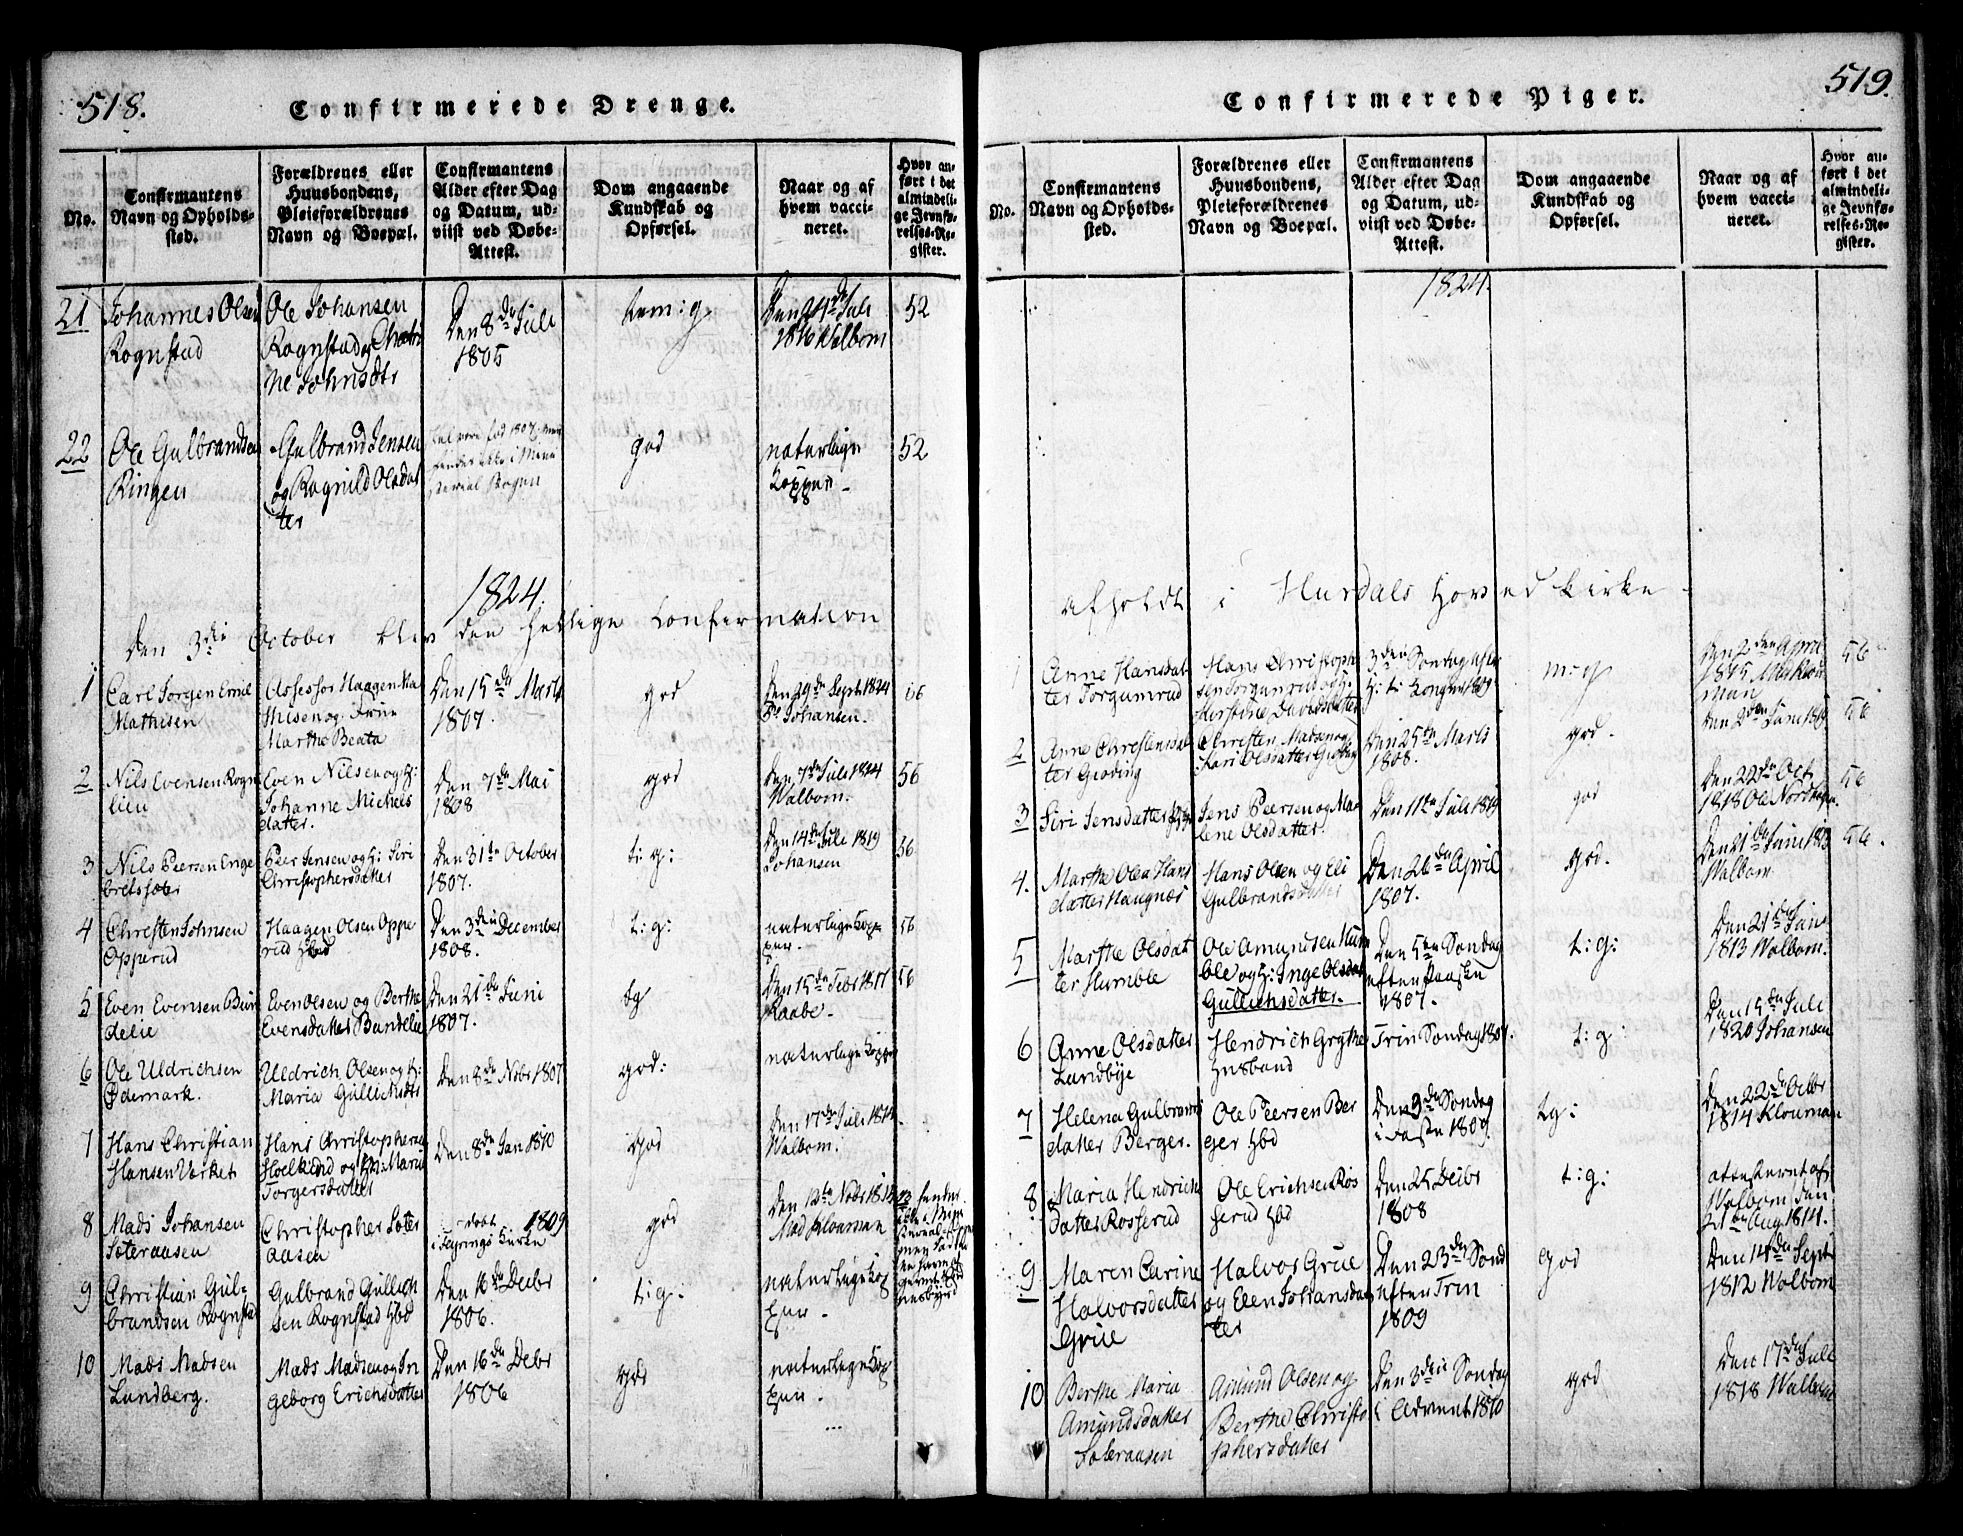 518.
Confirmerede Drenge.
No.
Confirmantens Navn og Opholds-sted.
Forældrenes eller Huusbondens, Pleieforældrenes Navn og Boepæl.
Confirmantens Alder efter Dag og Datum, ud-viist ved Døbe-Attest.
Dom angaaende Kundskab og Opførsel.
Naar og af hvem vacci-neret.
Hvor an-ført i det almindeli-ge Jevnfø-relses-Re-gister.
21 Johannes Olsen Rognstad
Ole Johansen Rognstad og
ne Johnsdtr
Den 8de Juli 1805
tem: g
Den 24de Juli 1816 Walbom
52
22 Ole Gulbrandsen Ringen
Gulbrand Jensen og Ragnild Olsdatter
god
naturlige Kopper
52
1824.
Den 3die October blev den hellige Confirmation
1 Carl Jorgen Emil Mathisen
Assessor Haagen Mathisen og Frue Marthe Beata
Den 15de Marts 1807.
god
Den 29de Sept. 1824 Johansen.
56
2 Nils Evensen Rognlien
Even Nilsen og H: Johanne Michelsdatter.
Den 7de Mai 1808
god
Den 7de Juli 1824 Walbom.
56
3 Nils Peersen
Peer Jensen og H: Siri Christophersdatter
Den 31te October 1807.
t: g:
Den 14de Juli 1819 Johansen
56
4 Christen Johnsen Opperud
Haagen Olsen Opperud Hbd
Den 3die December 1808.
t: g:
naturlige Kopper.
56
5 Even Evensen Bundelie
Even Olsen og Berthe Evensdatter Bundelie
Den 21de Juni 1807.
tg
Den 15de Febr 1811 Raabe
56
6 Ole Uldrichsen Ødemark.
Uldrich Olsen og H: Maria Gullichsdtr
Den 8de Nobr 1807
god:
naturlige Kopper
7 Hans Christian Hansen Verket
Hans Christophersen og H: Maria Torgersdatter
Den 8de Jan 1810
god
Den 17de Juli 1812 Walbom.
8 Mads Johansen Soteraasen
Christopher Soteraasen
døbt 1809 i Feyrings Kirke
god
Den 12te Nobr 1813 Mad Klouman
9 Christian Gulbrandsen Rognstad
Gulbrand Gullichsen Rognstad Hbd
Den 16de Decbr 1806.
t: g:
naturlige Kopper.
10 Mads Madsen Lundberg.
Mads Madsen og Ingeborg Erichsdatter
Den 16de Debr 1806
god
naturlige Kopper.
519.
Confirmerede Piger.
No.
Confirmantens Navn og Opholds-sted.
Forældrenes eller Huusbondens, Pleieforældrenes Navn og Boepæl.
Confirmantens Alder efter Dag og Datum, ud-viist ved Døbe-Attest.
Dom angaaende Kundskab og Opførsel.
Naar og af hvem vacci-neret.
Hvor an-ført i det almindeli-ge Jevnfø-relses-Re-gister.
1824.
afholdt i Hurdals Hovedkirke
1 Anne Hansdatter Torgunrud
Hans Christophersen Torgunrud og H: Kerstine Davidsdatter
3die Søndag efter H: tr: Konger 1809
m: g
Den 2den April 1815 Mad Klouman
56
2 Anne Christensdatter Gjøding
Christen Madsen og Kari Olsdatter
Den 25de Marts 1808.
god.
56
3 Siri Jensdatter
Jens Peersen og Malene Olsdatter.
Den 11te Juli 1819
god
Den 22de Oct 1818 Ole Nordhagen.
56
4. Marthe Olea Hansdatter Haugnæs
Hans Olsen og Eli Gulbrandsdatter
Den 26de April 1807.
god.
Den 21de Juni 1813 Walbom
56.
5 Marthe Olsdatter Humble
Ole Amundsen Humble og H: Inge Olsdat Gullichsdatter.
Den 5te Søndag efter Paasken 1807.
t: g:
Den 21de Juni 1813 Walbom.
6 Anne Olsdatter Lundbye
Hendrich Grythe Husbond
Trin Søndag 1807.
t: g:
Den 15de Juli 1820 Johansen
7 Helena Gulbrandsdatter Berger.
Ole Peersen Berger Hbd
Den 3de Søndag i Faste 1809.
tg:
Den 22de Octbr 1814 Klouman
8 Maria Hendrichsdatter Rosserud
Ole Erichsen Rosserud Hbd
Den 25 Deibr 1808
t: g:
attesteret af Walbom den 21de Aug 1814.
9 Maren Carine Halvorsdatter Grüe
Halvor Grüe og Elen Johansdatter
Den 23de Sønd efter Trin 1809
god
Den 14de Sept 1812 Walbom
10 Berthe Maria Amundsdatter Soteraasen
Amund Olsen og Berthe Christophersdatter
Den 3die Søndag i Advent 1810
god
Den 17de Juli 1818 Walbom